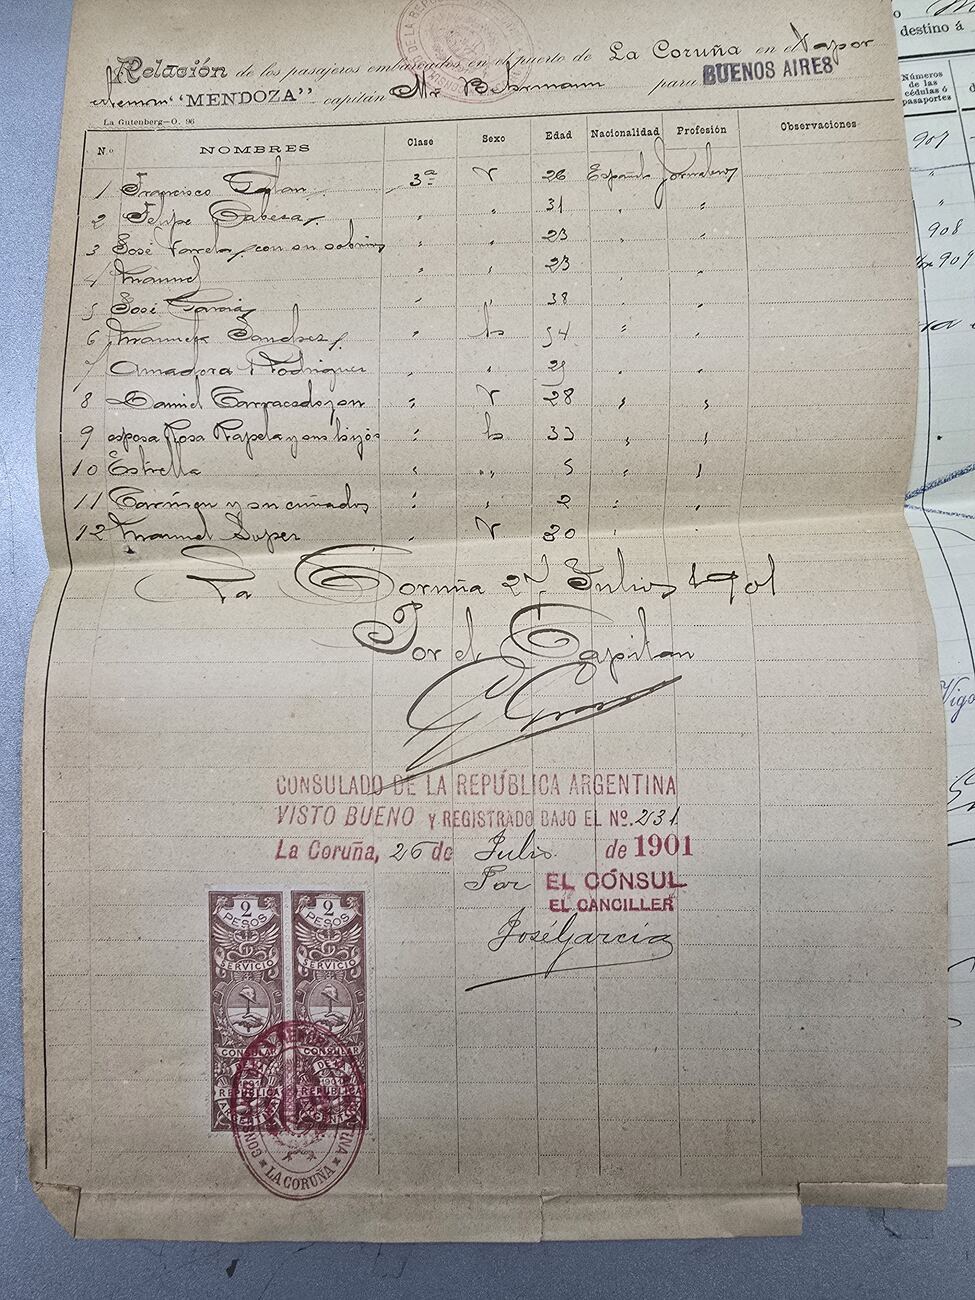 Relación de los pasajeros embarcados en el puerto de La Coruña en el Vapor
"MENDOZA" capitán Mr Behrmann para BUENOS AIRES
La Gutenberg—O. 96
N.º NOMBRES Clase Sexo Edad Nacionalidad Profesión Observaciones
1 Francisco 3ª V 26 Española Jornalero
2 Felipe Cabezas " " 31 " "
3 José Varela, con su sobrino " " 23 " "
4 Manuel " " 23 " "
5 José García " " 38 " "
6 Manuela Sanchez " h 54 " "
7 Amadora Rodriguez " " 29 " "
8 Daniel V 28 " "
9 esposa Rosa Rapela y sus hijos " h 33 " "
10 Estrella " " 5 " "
11 Carmen y su cuñado " " 2 " "
12 Manuel " V 30 " "
La Coruña 27 Julio 1901
Por el Capitan
CONSULADO DE LA REPÚBLICA ARGENTINA
VISTO BUENO Y REGISTRADO BAJO EL Nº. 231
La Coruña, 26 de Julio de 1901
Por EL CÓNSUL
EL CANCILLER
José García
2 PESOS
SERVICIO
CONSULAR
DE LA
REPUBLICA
ARGENTINA
2 PESOS
SERVICIO
CONSULAR
DE LA
REPUBLICA
ARGENTINA
LA CORUÑA
destino á
Números de las cédulas ó pasaportes
907
908
909
Vigo